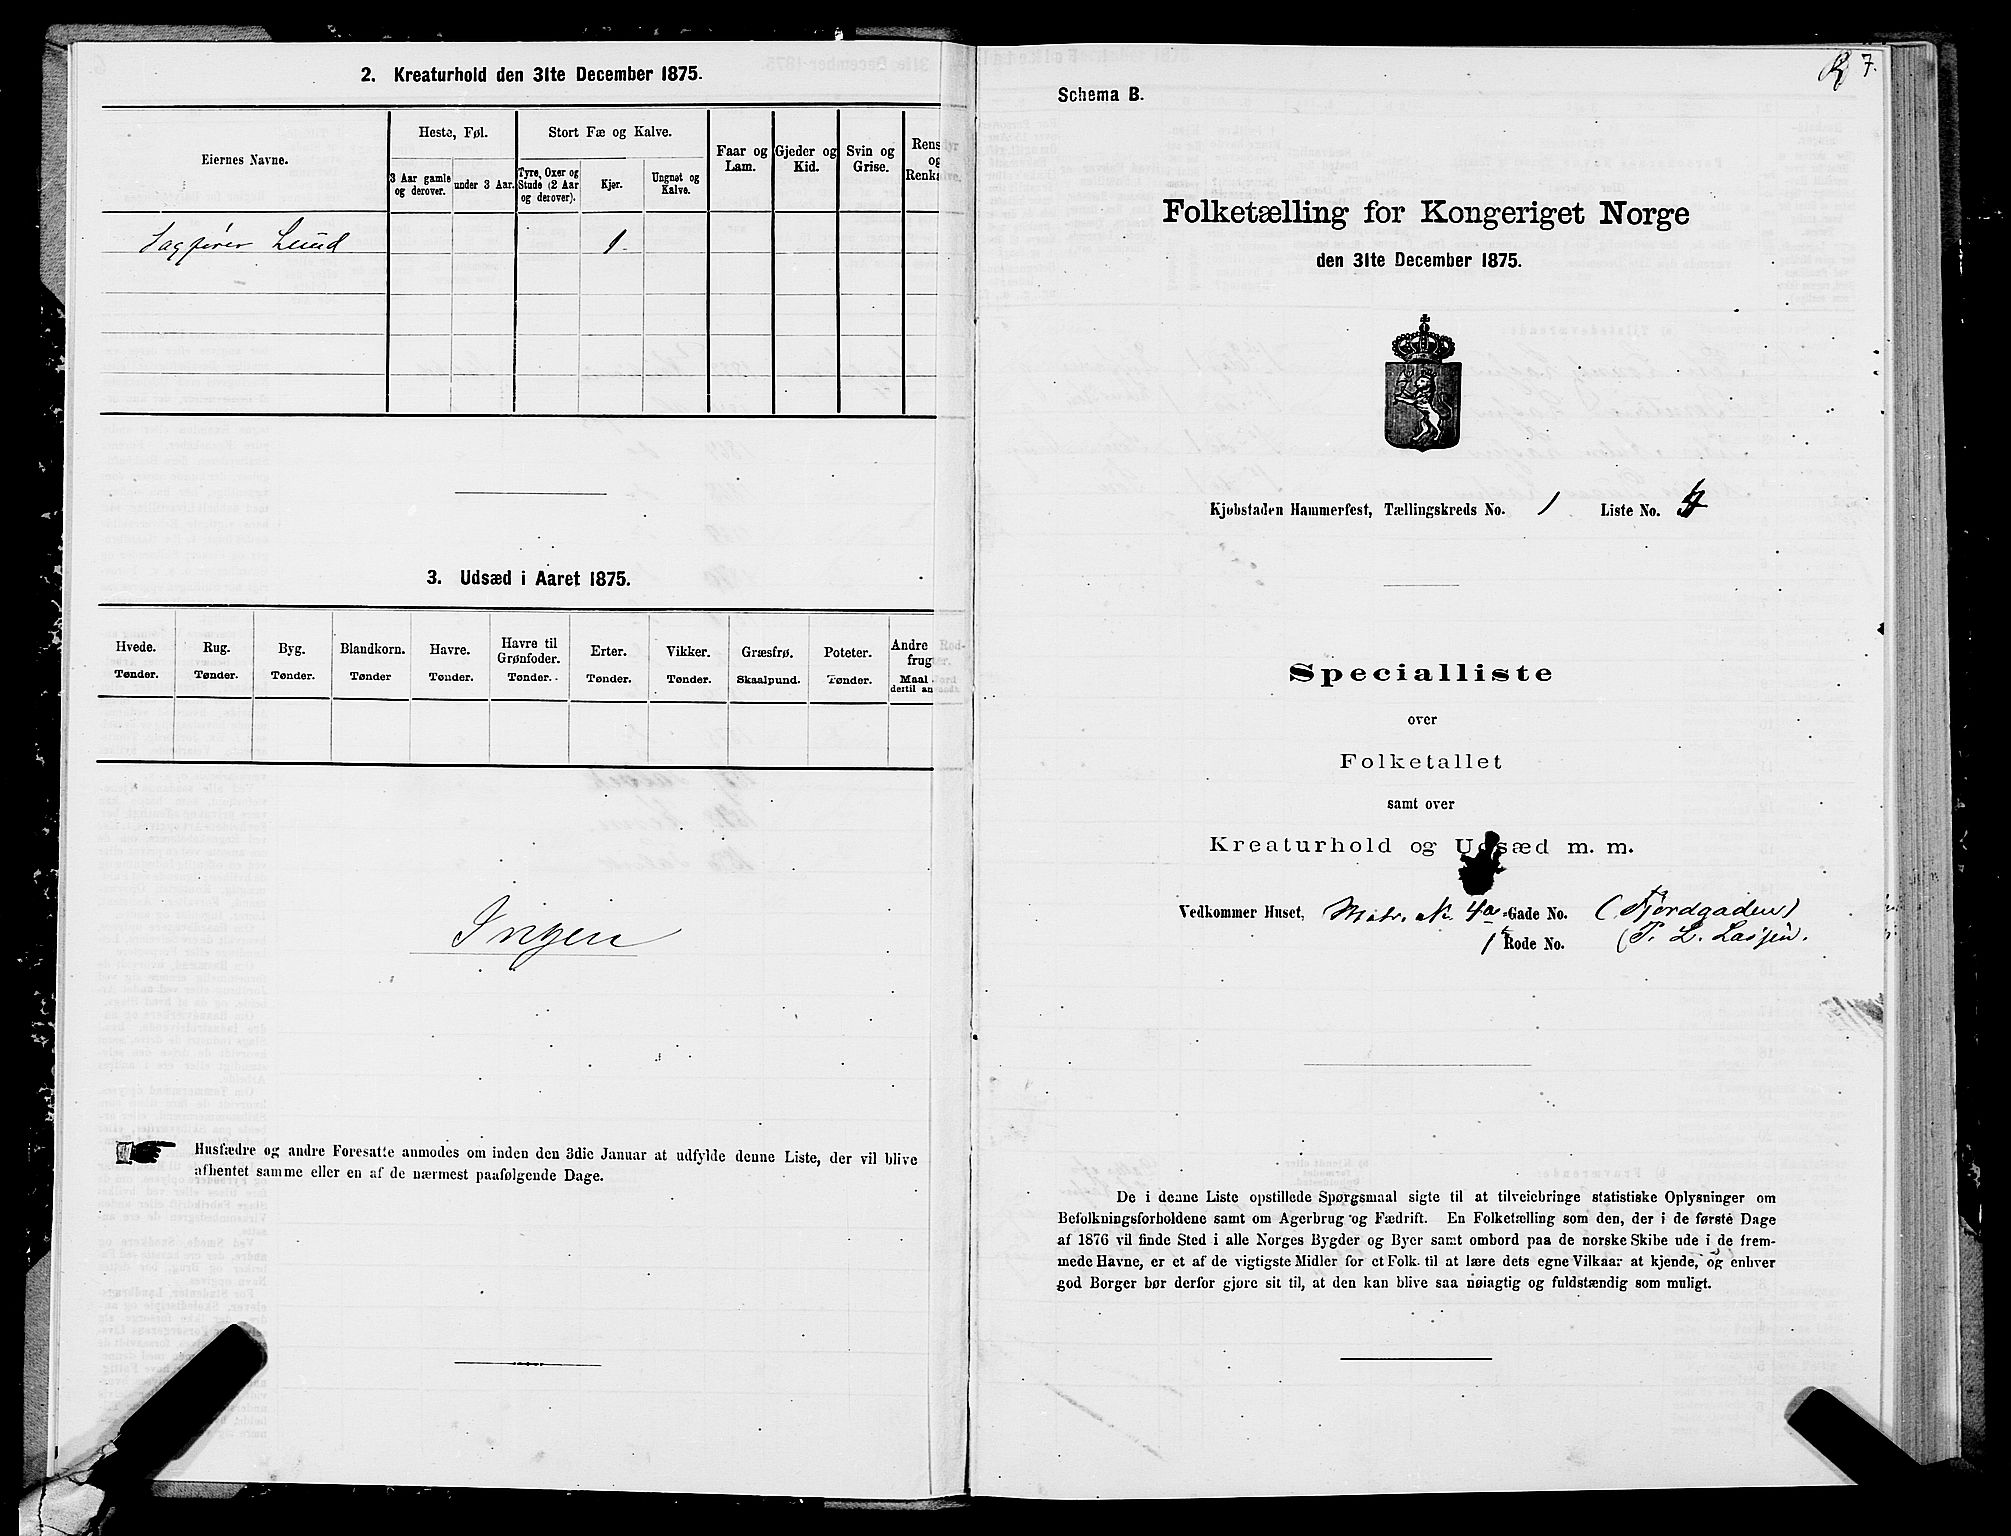 2. Kreaturhold den 31te December 1875.
Eiernes Navne.
Heste, Føl.
Stort Fæ og Kalve.
Faar og Lam.
Gjeder og Kid.
Svin og Grise.
Rens
og
Renk
3 Aar gamle og derover.
under 3 Aar.
Tyre, Oxer og Stude (2 Aar og derover).
Kjør.
Ungnøt og Kalve.
Sagfører Lund 1.
3. Udsæd i Aaret 1875.
Hvede. Tønder.
Rug. Tønder.
Byg. Tønder.
Blandkorn. Tønder
Havre. Tønder.
Havre til Grønfoder. Tønder.
Erter. Tønder.
Vikker. Tønder.
Græsfrø. Skaalpund.
Poteter. Tønder.
Andre
frug
Maal
dertil an
Ingen
Husfædre og andre Foresatte anmodes om inden den 3die Januar at udfylde denne Liste, der vil blive
afhentet samme eller en af de nærmest paafølgende Dage.
7.
Schema B.
Folketælling for Kongeriget Norge
den 31te December 1875.
Kjøbstaden Hammerfest, Tællingskreds No. 1 Liste No.
Specialliste
over
Folketallet
samt over
Kreaturhold og Udsæd m. m.
Vedkommer Huset, Matr. No. 4a Gade No. (Fjordgaden)
1 Rode No. (P. L. Lassen.
De i denne Liste opstillede Spørgsmaal sigte til at tilveiebringe statistiske Oplysninger om
Befolkningsforholdene samt om Agerbrug og Fædrift. En Folketælling som den, der i de første Dage
af 1876 vil finde Sted i alle Norges Bygder og Byer samt ombord paa de norske Skibe ude i de frem-
mede Havne, er et af de vigtigste Midler for et Folk til at lære dets egne Vilkaar at kjende, og enhver
god Borger bør derfor gjøre sit til, at den kan blive saa nøiagtig og fuldstændig som muligt.